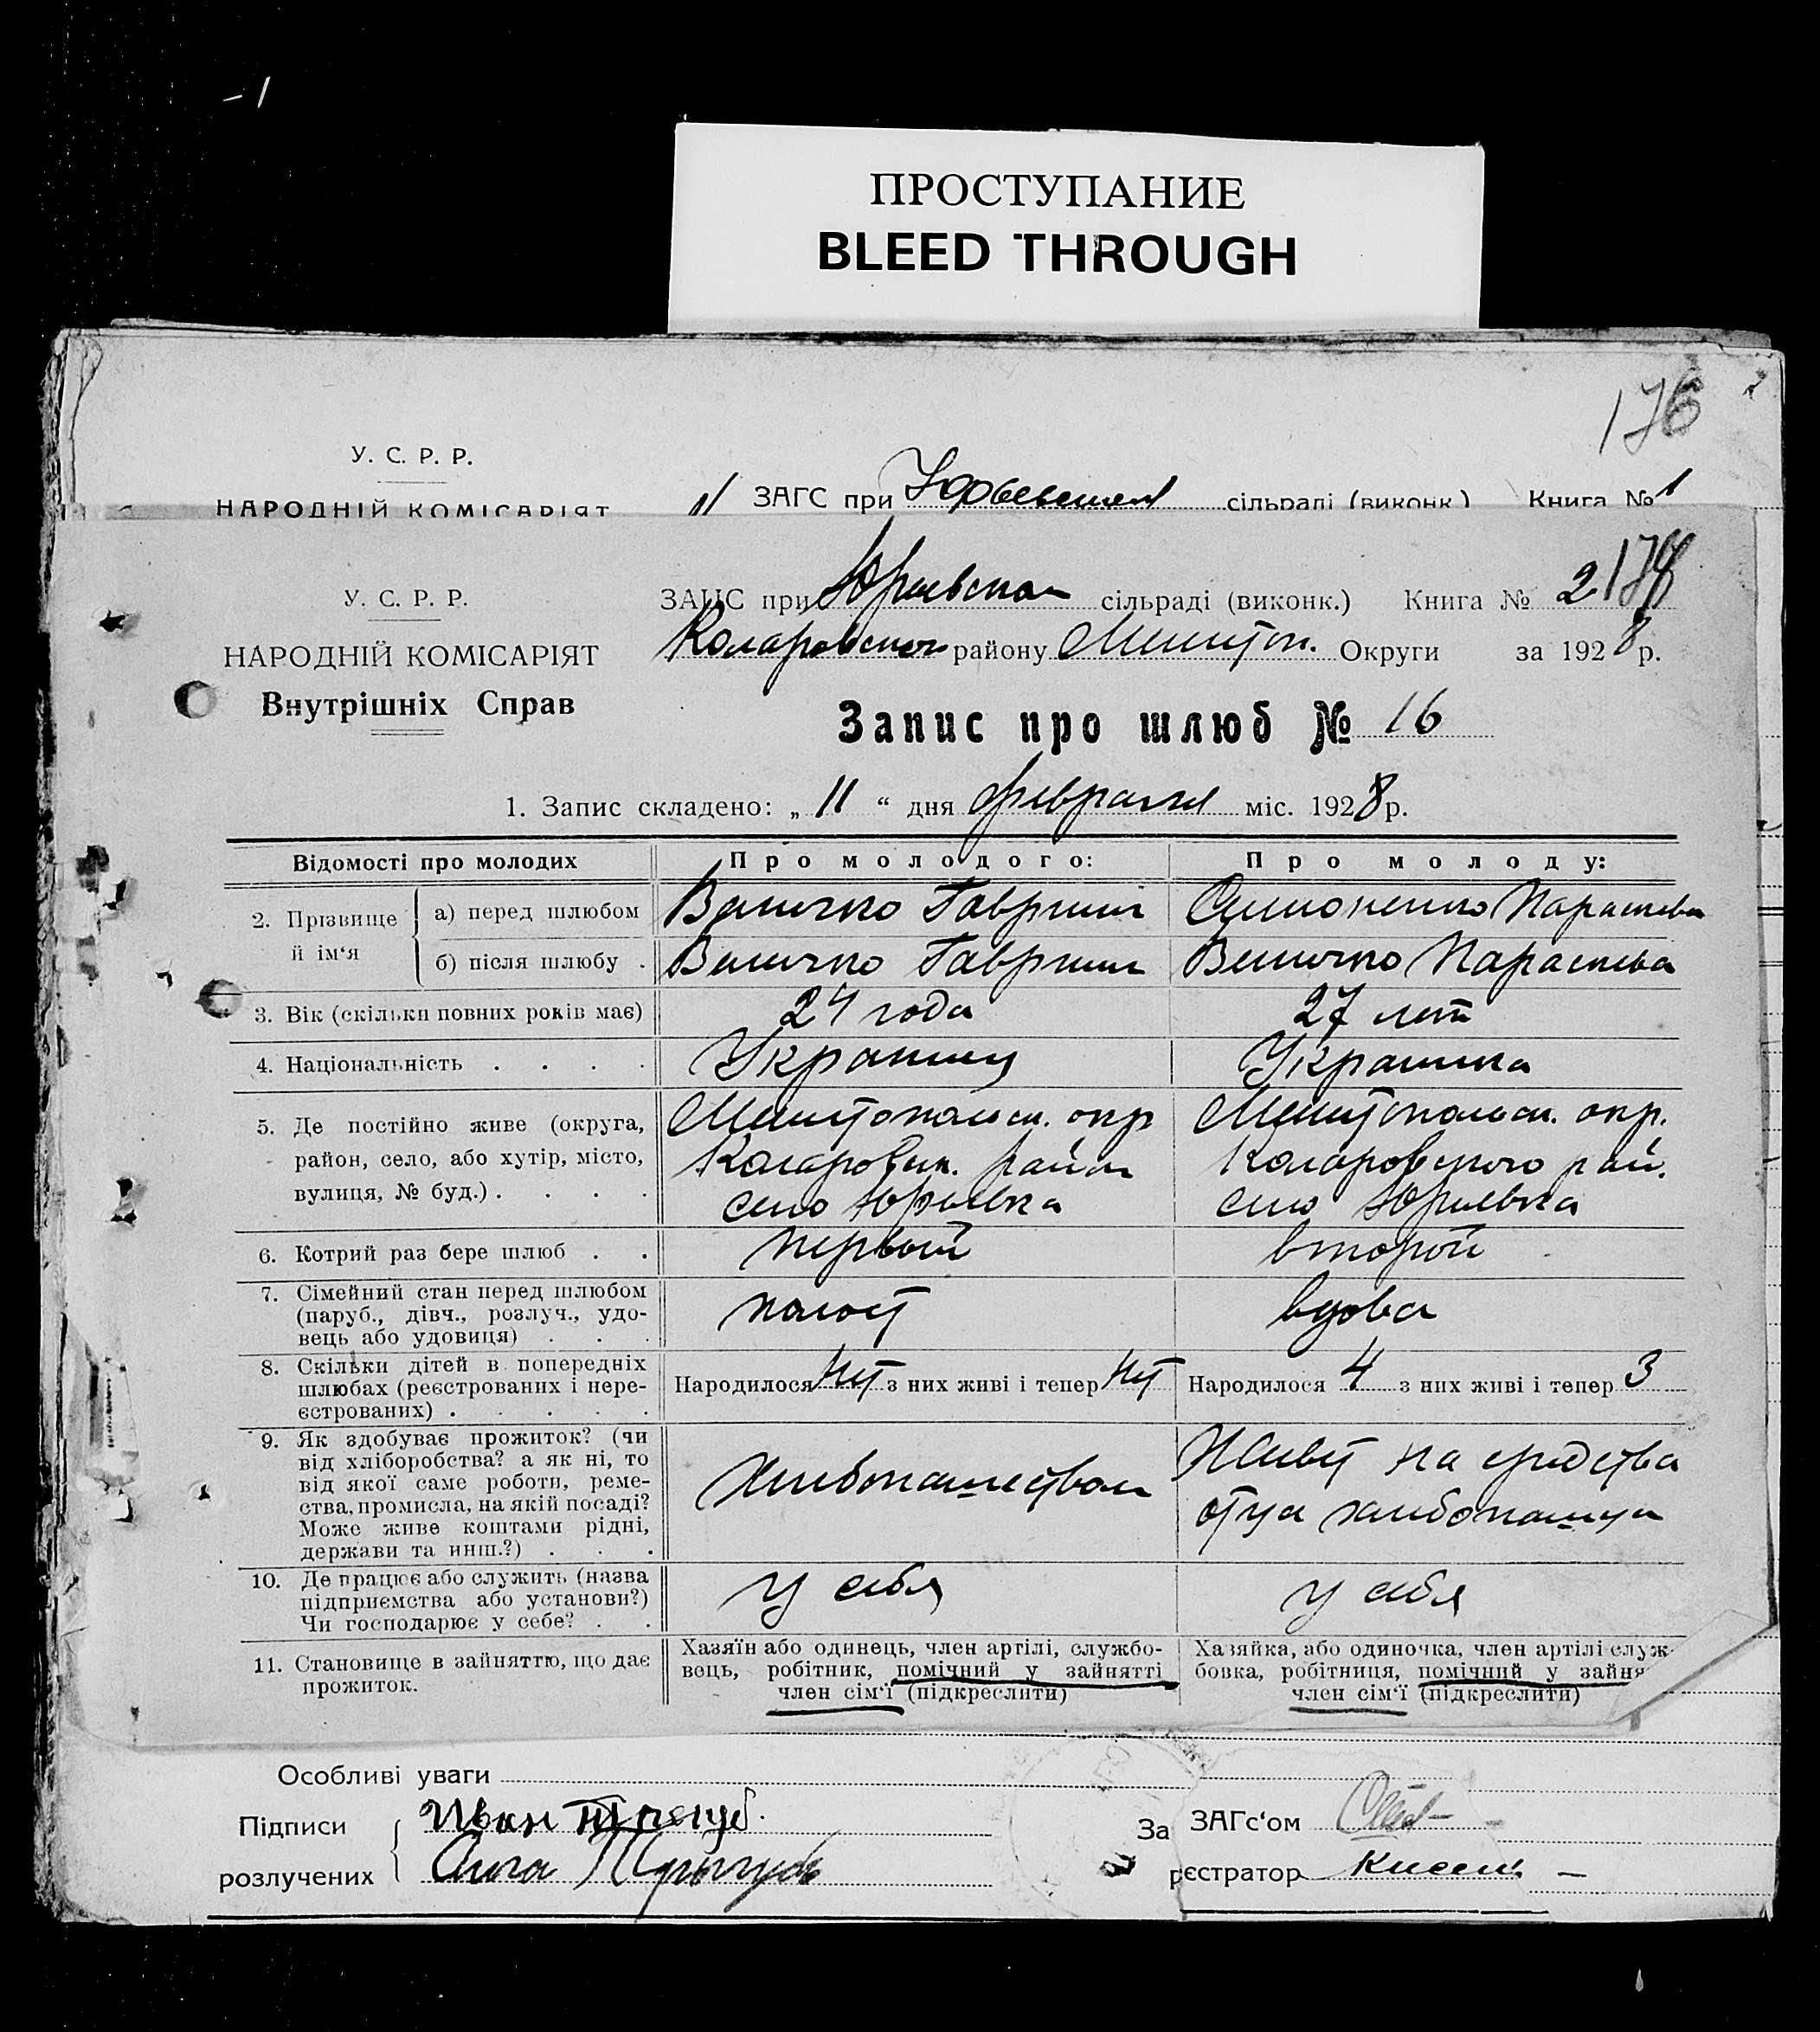 – 1
ПРОСТУПАНИЕ
BLEED THROUGH
176
У. С. Р. Р.
НАРОДНІЙ КОМІСАРІЯТ
ЗАГС при Юрьевском сільраді (виконк.) Книга № 1
У. С. Р. Р.
НАРОДНІЙ КОМІСАРІЯТ
Внутрішніх Справ
ЗАГС при Юрьевском сільраді (виконк.) Книга № 2
Коларовского району Мелитоп. Округи за 1928 р.
Запис про шлюб № 16
1. Запис складено: „ 11 “ дня февраля міс. 1928 р.
Відомості про молодих
Про молодого:
Про молоду:
2. Прізвище й ім‘я
а) перед шлюбом
Величко Гавриил
Симоненко Параскева
б) після шлюбу .
Величко Гавриил
Величко Параскева
3. Вік (скільки повних років має)
24 года
27 лет
4. Національність . . . .
Украинец
Украинка
5. Де постійно живе (округа,
район, село, або хутір, місто,
вулиця, № буд.) . . . .
Мелитопольск. окр
Коларовск. район
село Юрьевка
Мелитопольск. окр.
Коларовского рай.
село Юрьевка
6. Котрий раз бере шлюб . .
первый
второй
7. Сімейний стан перед шлюбом
(паруб., дівч., розлуч., удо-
вець або удовиця) . . .
холост
вдова
8. Скільки дітей в попередніх
шлюбах (реєстрованих і нере-
єстрованих) . . . . .
Народилося нет з них живі і тепер нет
Народилося 4 з них живі і тепер 3
9. Як здобуває прожиток? (чи
від хліборобства? а як ні, то
від якої саме роботи, реме-
ства, промисла, на якій посаді?
Може живе коштами рідні,
держави та инш.?) . . .
Хлебопашеством
Живет на средства
отца хлебопашца
10. Де працює або служить (назва
підприємства або установи?)
Чи господарює у себе? . .
у себя
у себя
11. Становище в зайняттю, що дає
прожиток.
Хазяїн або одинець, член артілі, службо-
вець, робітник, помічний у зайнятті
член сім‘ї (підкреслити)
Хазяйка, або одиночка, член артілі служ-
бовка, робітниця, помічний у зайня
член сім‘ї (підкреслити)
Особливі уваги
Підписи
розлучених
Иван
За ЗАГс‘ом
рєстратор